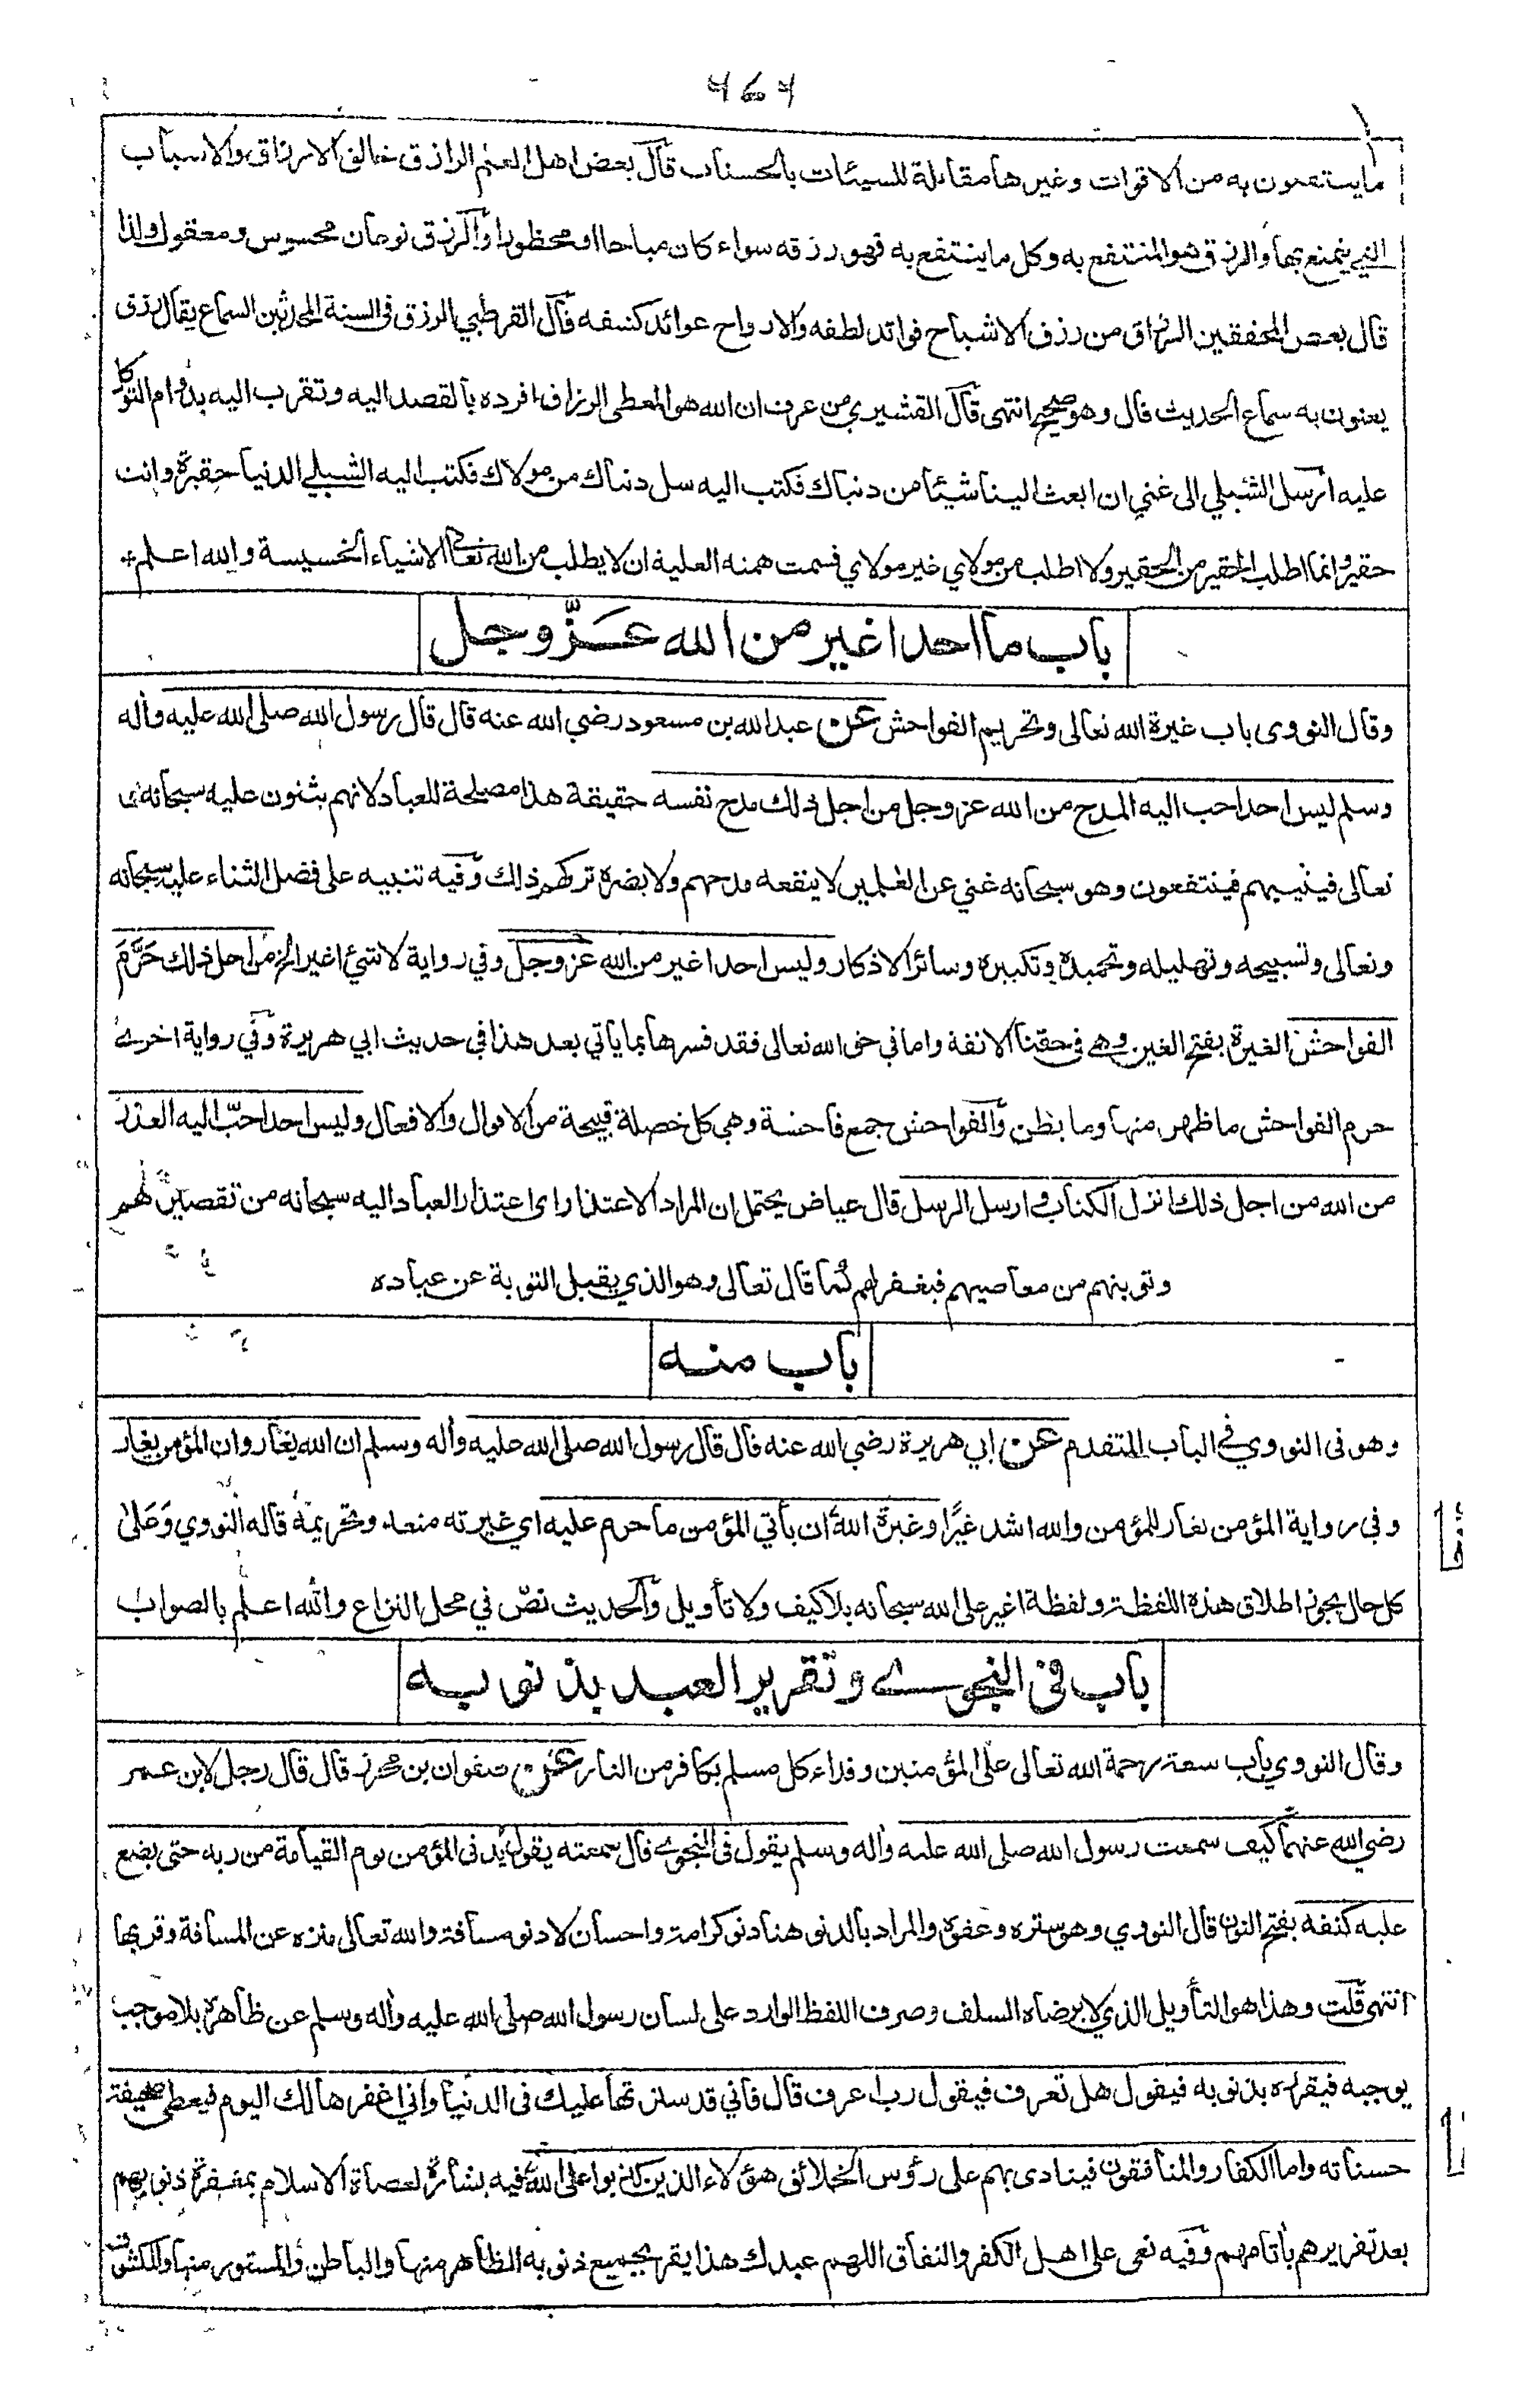 ٤٦٤
ما يستمعون به من الاقوات وغيرها مقابلة للسيئات بالحسنات قال بعض اهل العلم الرازق خالق الارزاق والاسباب
التي يتمتع بها والرزق هو المنتفع به وكل ما ينتفع به فهو رزقه سواء كان مباحا او محظورا والرزق نوعان محسوس ومعقول ولذا
قال بعض المحققين الرزاق من رزق الاشباح فوائد لطفه والارواح عوائد كشفه قال القرطبي الرزق في السنة المحدثين السماع يقال رزق
يعنون به سماع الحديث قال وهو صحيح انتهى قال القشيري من عرف ان الله هو المعطي الرزاق افرده بالقصد اليه وتقرب اليه بدوام التوكل
عليه ارسل الشبلي الى غني ان ابعث الينا شيئا من دنياك فكتب اليه سل دنياك من مولاك فكتب اليه الشبلي الدنيا حقيرة وانت
حقير وانما اطلب الحقير من الحقير ولا اطلب من مولاي غير مولاي فسمت همته العلية ان لا يطلب من الله تعالى الاشياء الخسيسة والله اعلم
باب ما احد اغير من الله عَزّ وجل
وقال النووى باب غيرة الله تعالى وتحريم الفواحش عن عبد الله بن مسعود رضي الله عنه قال قال رسول الله صلى الله عليه وآله
وسلم ليس احد احب اليه المدح من الله عز وجل من اجل ذلك مدح نفسه حقيقة هذا مصلحة للعباد لانهم يثنون عليه سبحانه
تعالى فيثيبهم فينتفعون وهو سبحانه غني عن العلمين لا ينفعه مدحهم ولا يضره تركهم ذلك وفيه تنبيه على فضل الثناء عليه سبحانه
وتعالى وتسبيحه وتهليله وتحميده وتكبيره وسائر الاذكار وليس احد اغير من الله عز وجل وفي رواية لا شيئ اغير الخ من اجل ذلك حَرَّمَ
الفواحش الغيرة بفتح الغين وهي في حقنا الانفة واما في حق الله تعالى فقد فسرها بما ياتي بعد هذا في حديث ابي هريرة وفي رواية اخرى
حرم الفواحش ما ظهر منها وما بطن والفواحش جمع فاحشة وهي كل خصلة قبيحة من الاقوال والافعال وليس احد احبّ اليه العذر
من الله من اجل ذلك انزل الكتاب وارسل الرسل قال عياض يحتمل ان المراد الاعتذار اى اعتذار العباد اليه سبحانه من تقصيرهم
وتوبتهم من معاصيهم فيغفر لهم كما قال تعالى وهو الذي يقبل التوبة عن عباده
باب منه
وهو فى النووي في الباب المتقدم عن ابي هريرة رضي الله عنه قال قال رسول الله صلى الله عليه وآله وسلم ان الله يغار وان المؤمن يغار
وفي رواية المؤمن يغار للمؤمن والله اشد غيرًا وغيرة الله ان يأتي المؤمن ما حرم عليه اي غيرته منعه وتحريمه قاله النووي وَعَلى
كل حال يجوز اطلاق هذه اللفظة ولفظة اغير على الله سبحانه بلا كيف ولا تأويل والحديث نصّ في محل النزاع والله اعلم بالصواب
باب فى النجوى وتقرير العبد بذنوبه
وقال النووي باب سعة رحمة الله تعالى على المؤمنين وفداء كل مسلم بكافر من النار عن صفوان بن محرز قال قال رجل لابن عمر
رضي الله عنهما كيف سمعت رسول الله صلى الله عليه وآله وسلم يقول فى النجوى قال سمعته يقول يدنى المؤمن يوم القيامة من ربه حتى يضع
عليه كنفه بفتح النون قال النووي وهو ستره وعفوه والمراد بالدنو هنا دنو كرامة واحسان لا دنو مسافة والله تعالى منزه عن المسافة وقربها
انتهى قلت وهذا هو التأويل الذي لا يرضاه السلف وصرف اللفظ الوارد على لسان رسول الله صلى الله عليه وآله وسلم عن ظاهره بلا موجب
يوجبه فيقرره بذنوبه فيقول هل تعرف فيقول رب اعرف قال فاني قد سترتها عليك فى الدنيا واني اغفرها لك اليوم فيعطى صحيفة
حسناته واما الكفار والمنافقون فينادى بهم على رؤس الخلائق هؤلاء الذين كذبوا على الله فيه بشارة لعصاة الاسلام بمغفرة ذنوبهم
بعد تقريرهم بآثامهم وفيه نعى على اهل الكفر والنفاق اللهم عبدك هذا يقر بجميع ذنوبه الظاهر منها والباطن والمستور منها والمكشوف